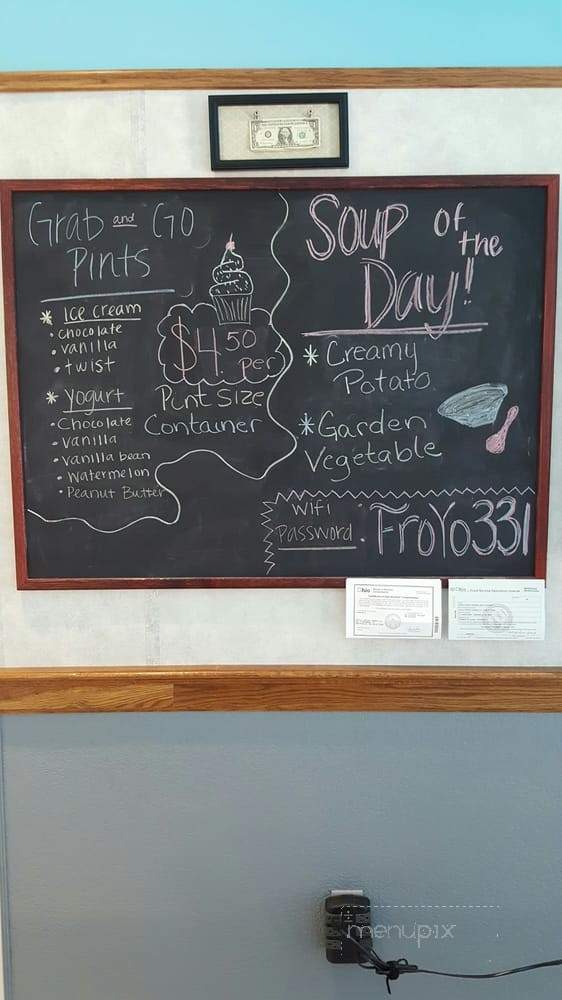 Grab and Go
Pints
* Ice cream
• chocolate
• vanilla
• twist
* Yogurt
• Chocolate
• vanilla
• vanilla bean
• Watermelon
• Peanut Butter
$4.50
per
Pint Size
Container
Soup of
the
Day!
* Creamy
Potato
* Garden
Vegetable
Wifi
Password : FroYo331
Ohio
Ohio
menupix